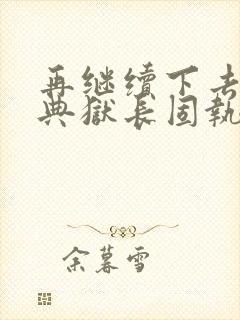 再继续下去
典獄长固執
余暮雪